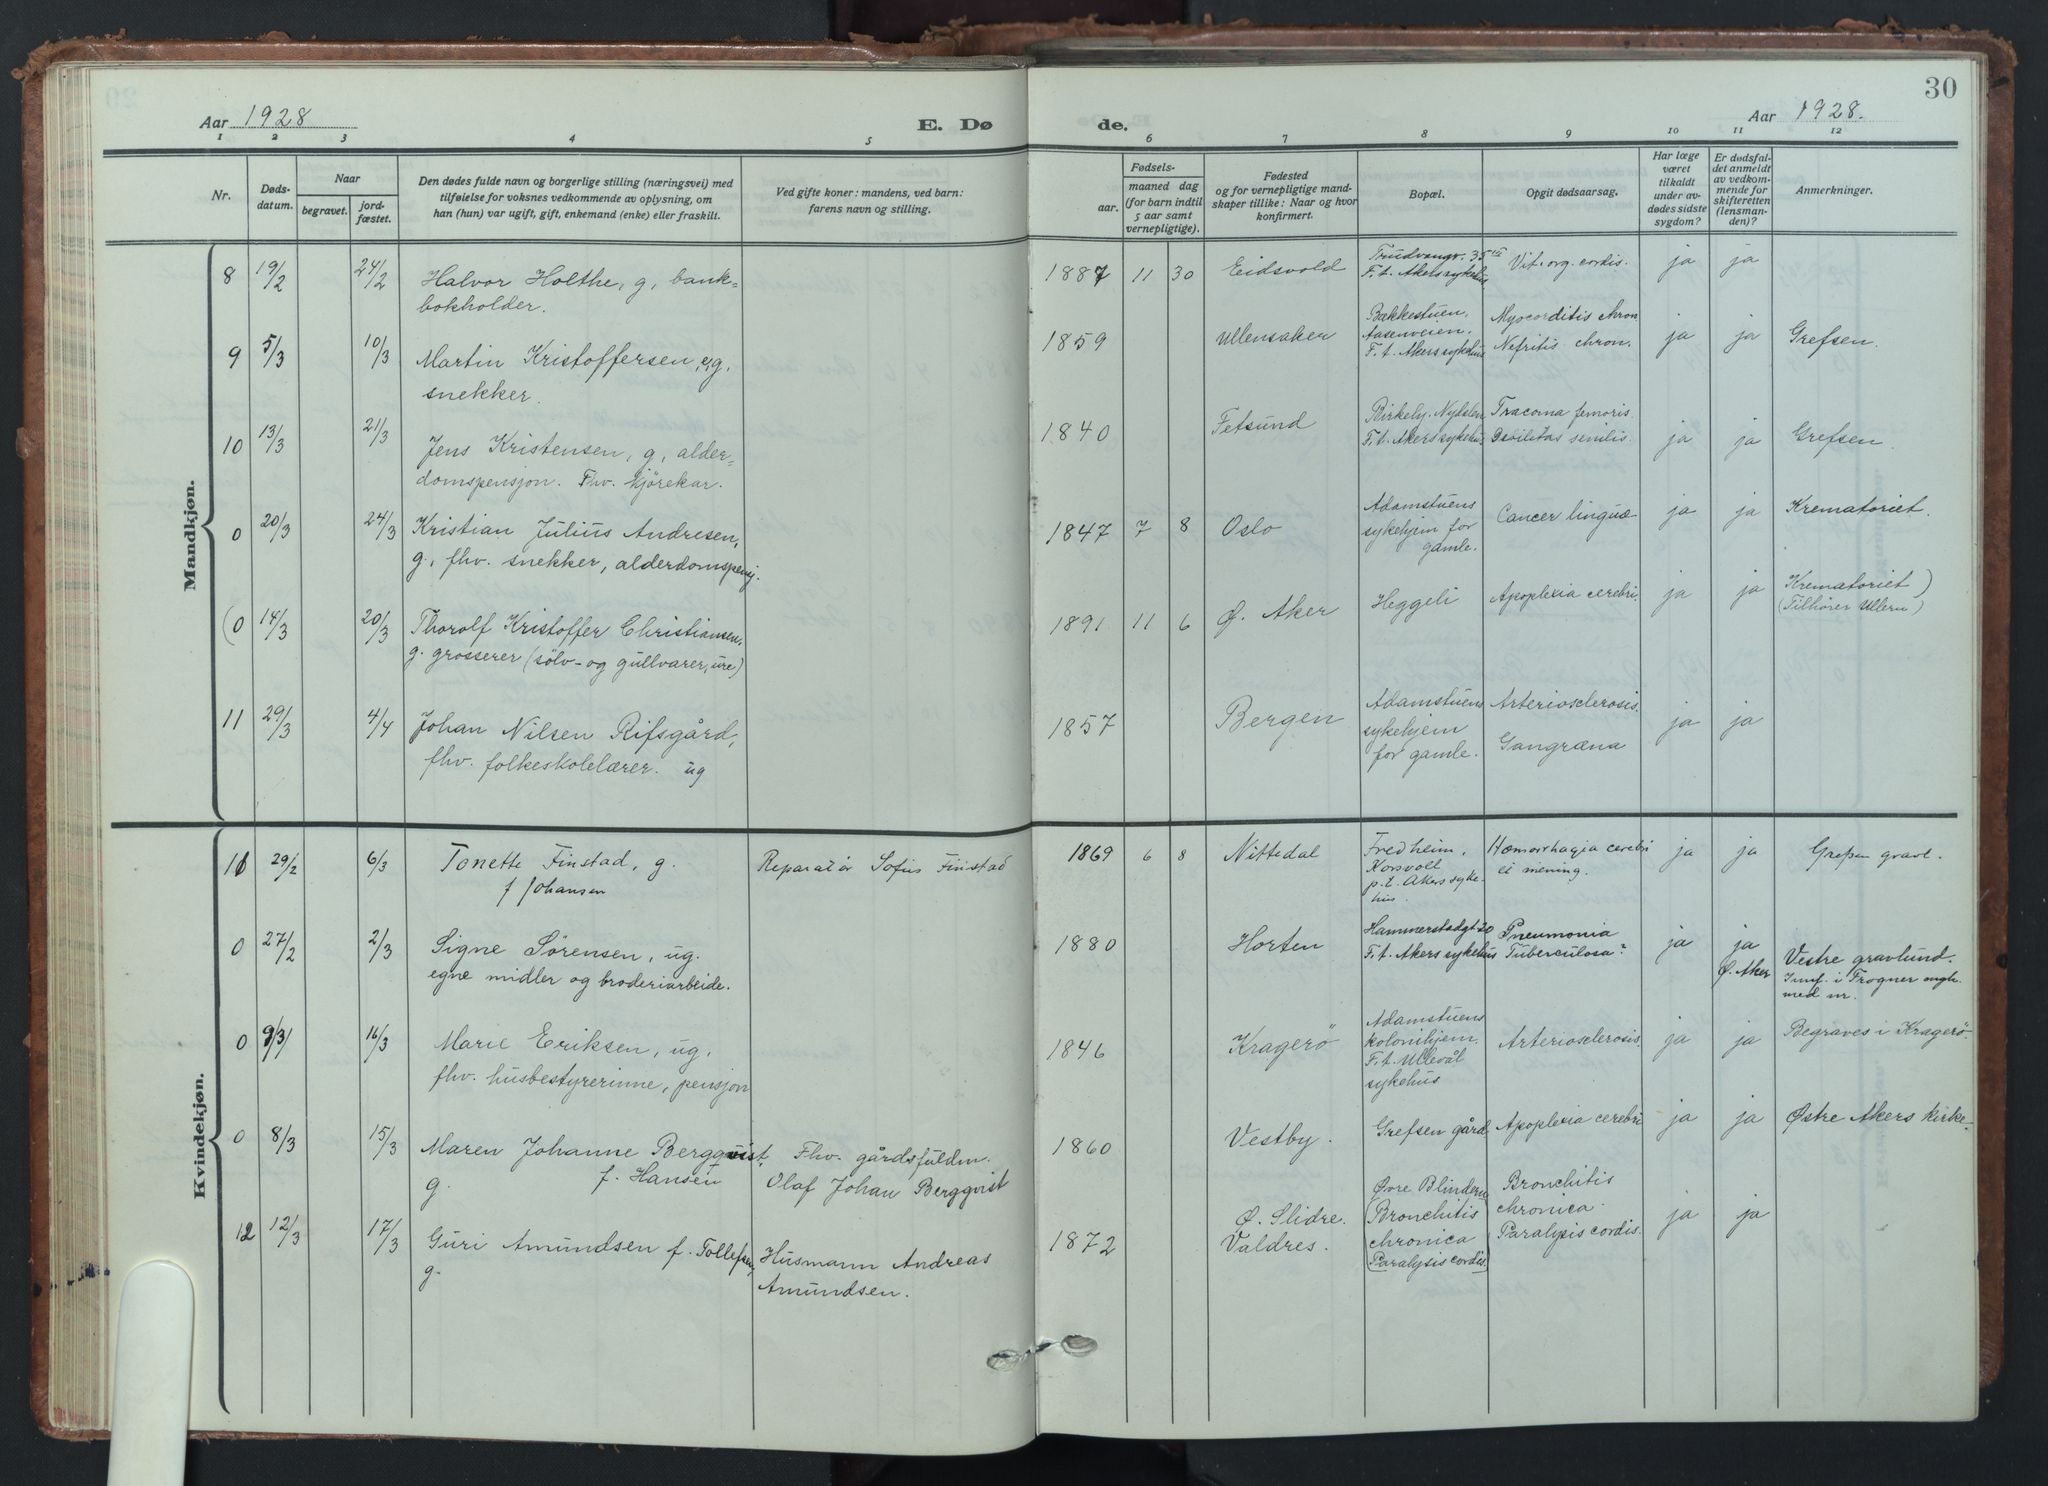 Aar 1928
E. Dø
de.
30
Aar 1928.
1 2 3 4 5 6 7 8 9 10 11 12
Nr.
Døds-
datum.
Naar
begravet.
jord-
fæstet.
Den dødes fulde navn og borgerlige stilling (næringsvei) med
tilføielse for voksnes vedkommende av oplysning, om
han (hun) var ugift, gift, enkemand (enke) eller fraskilt.
Ved gifte koner: mandens, ved barn:
farens navn og stilling.
Fødsels-
aar.
maaned dag
(for barn indtil
5 aar samt
vernepligtige).
Fødested
og for vernepligtige mand-
skaper tillike: Naar og hvor
konfirmert.
Bopæl.
Opgit dødsaarsag.
Har læge
været
tilkaldt
under av-
dødes sidste
sygdom?
Er dødsfal-
det anmeldt
av vedkom-
mende for
skifteretten
(lensman-
den)?
Anmerkninger.
Mandkjøn.
8 19/2 24/2
Halvor Holthe, g, bank-
bokholder.
1887 11 30 Eidsvold
35
F. t. Akers sykehus
Vit. org. cordis.
ja ja
9 5/3 10/3
Martin Kristoffersen, g,
snekker.
1859 Ullensaker
Bakkestuen,
Aasenveien.
F. t. Akers sykehus
Myocorditis chron
Nefritis chron.
ja ja Grefsen.
10 13/3 21/3
Jens Kristensen, g, alder-
domspensjon. Fhv. kjørekar.
1840 Fetsund
Birkely. Nydalen
F. t. Akers sykehus
Tracoma femoris.
Debilitas senilis.
ja ja Grefsen.
0 20/3 24/3
Kristian Julius Andresen,
g, fhv. snekker, alderdomspensj.
1847 7 8 Oslo
Adamstuens
sykehjem for
gamle.
Cancer linguæ
ja ja Krematoriet.
(0 14/3 20/3
Thorolf Kristoffer Christiansen,
g. grosserer (sölv- og gullvarer, ure)
1891 11 6 Ø. Aker
Heggeli
Apoplexia cerebri.
ja ja Krematoriet )
(Tilhører Ullern)
11 29/3 4/4
Johan Nilsen Rifsgård,
fhv. folkeskolelærer. ug
1857 Bergen
Adamstuens
sykehjem
for gamle.
Arteriosclerosis.
Gangræna
ja ja
Kvindekjøn.
11 29/2 6/3
Tonette Finstad, g.
f Johansen
Reparatör Sofus Finstad
1869 6 8 Nittedal
Fredheim,
Korsvoll
p.t. Akers syke-
hus.
Hæmorrhagia cerebri
et mening.
ja ja Grefsen gravl.
0 27/2 2/3
Signe Sörensen, ug.
egne midler og broderiarbeide.
1880 Horten
Hammerstadgt 20
F. t. Akers sykehus
Pneumonia
Tuberculosa?
ja ja
Ø. Aker
Vestre gravlund.
Innf. i Frogner
med nr.
0 9/3 16/3
Marie Eriksen, ug,
fhv. husbestyrerinne, pensjon
1846 Kragerö
Adamstuens
kolonihjem.
F. t. Ullevål
sykehus
Arteriosclerosis.
ja ja Begraves i Kragerö.
0 8/3 15/3
Maren Johanne Bergqvist,
g. f. Hansen
Fhv. gårdsfuldm.
Olaf Johan Bergqvist
1860 Vestby.
Grefsen gård
Apoplexia cerebri
ja ja Østre Akers kirke-
12 12/3 17/3
Guri Amundsen f. Tollefsen,
g.
Husmann Andreas
Amundsen.
1872
Ø. Slidre.
Valdres.
Øvre Blindern
(Bronchitis
chronica
(Paralysis cordis.)
Bronchitis
chronica.
Paralysis cordis.
ja ja